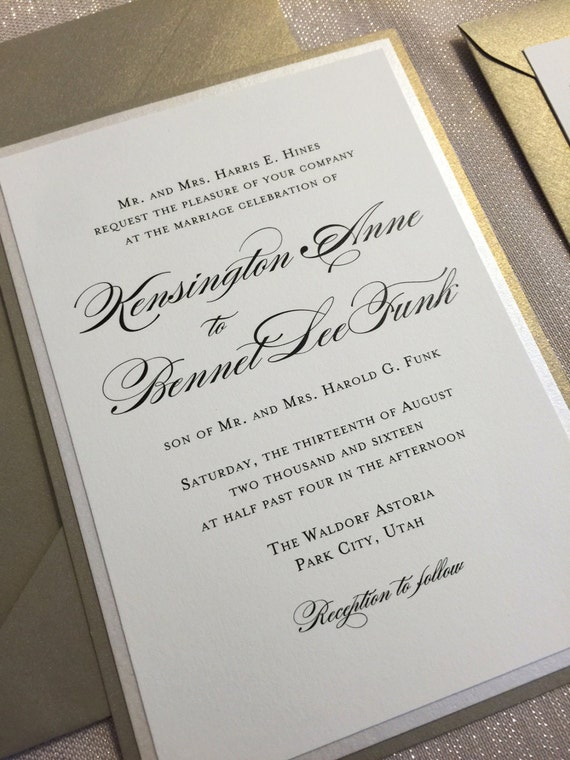 Mr. and Mrs. Harris E. Hines
request the pleasure of your company
at the marriage celebration of
Kensington Anne
to
Bennet Lee Funk
son of Mr. and Mrs. Harold G. Funk
Saturday, the thirteenth of August
two thousand and sixteen
at half past four in the afternoon
The Waldorf Astoria
Park City, Utah
Reception to follow